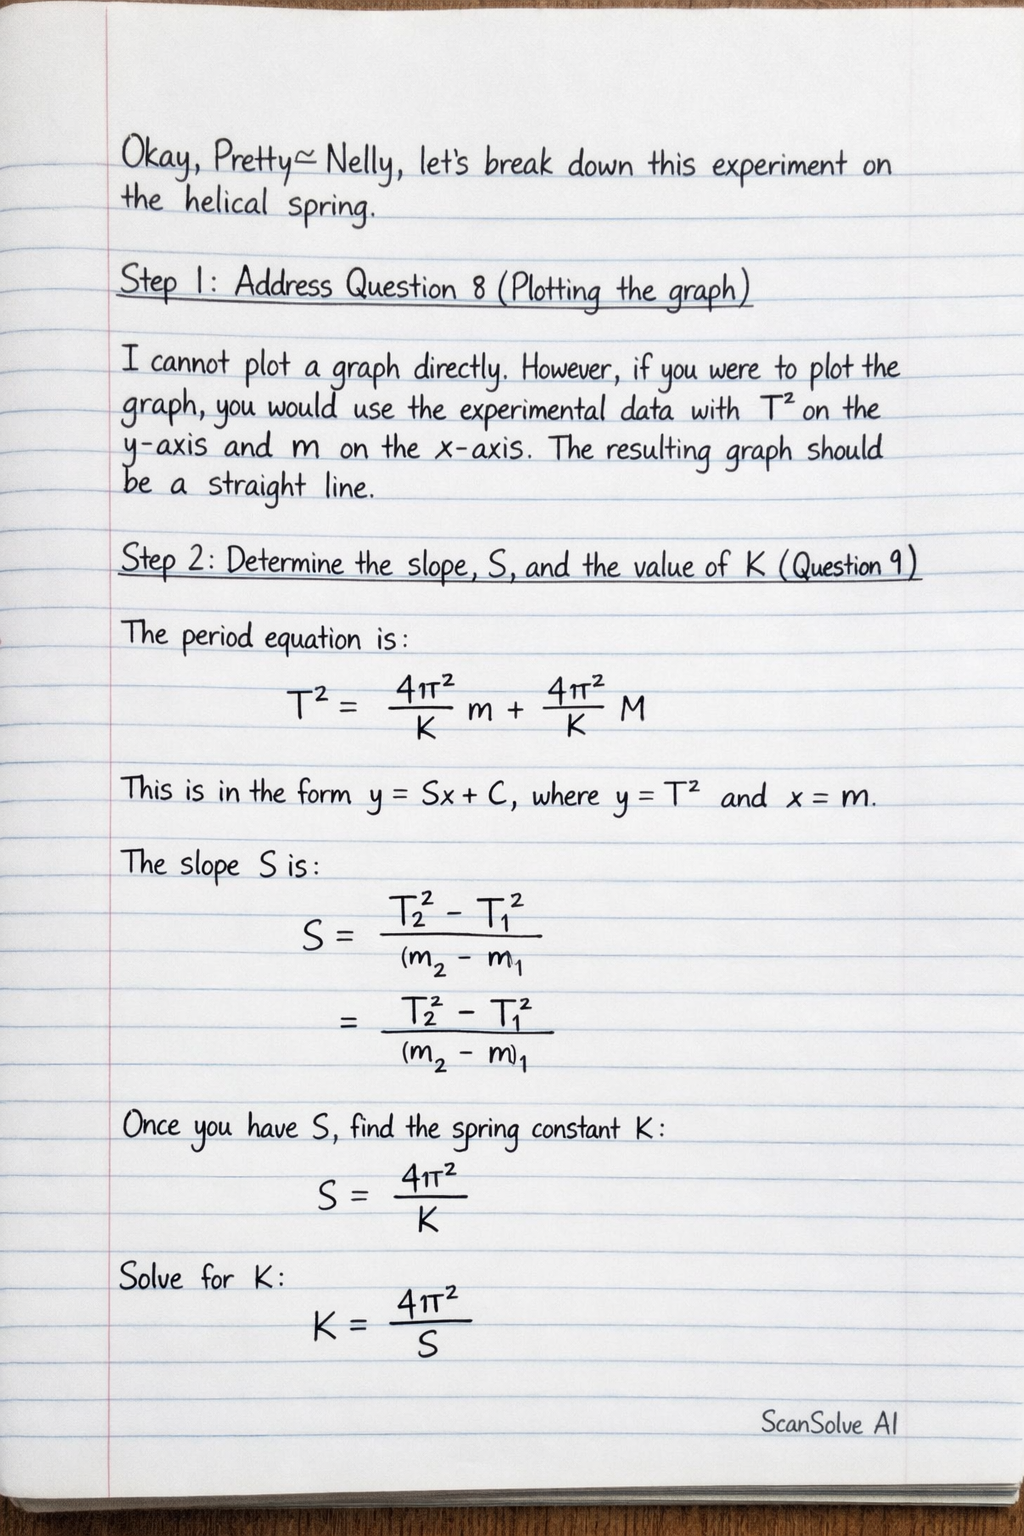 Okay, Pretty≃ Nelly, let's break down this experiment on
the helical spring.
Step 1: Address Question 8 (Plotting the graph)
I cannot plot a graph directly. However, if you were to plot the
graph, you would use the experimental data with T² on the
y-axis and m on the x-axis. The resulting graph should
be a straight line.
Step 2: Determine the slope, S, and the value of K (Question 9)
The period equation is:
T² = 4π²/K m + 4π²/K M
This is in the form y = Sx + C, where y = T² and x = m.
The slope S is:
S = T₂² - T₁² / (m₂ - m₁
= T₂² - T₁² / (m₂ - m)₁
Once you have S, find the spring constant K:
S = 4π²/K
Solve for K:
K = 4π²/S
ScanSolve AI